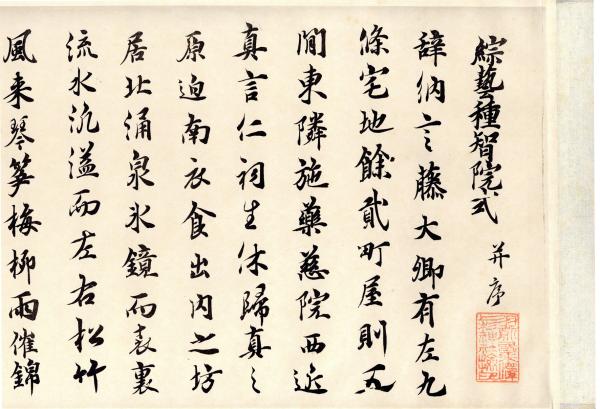 綜藝種智院式 并序
辭納言藤大卿有左九
條宅地餘貳町屋則五
間東隣施藥慈院西近
真言仁祠生休歸真之
原迫南衣食出内之坊
居北涌泉氷鏡而表裏
流水汎溢而左右松竹
風来琴箏梅柳雨催錦